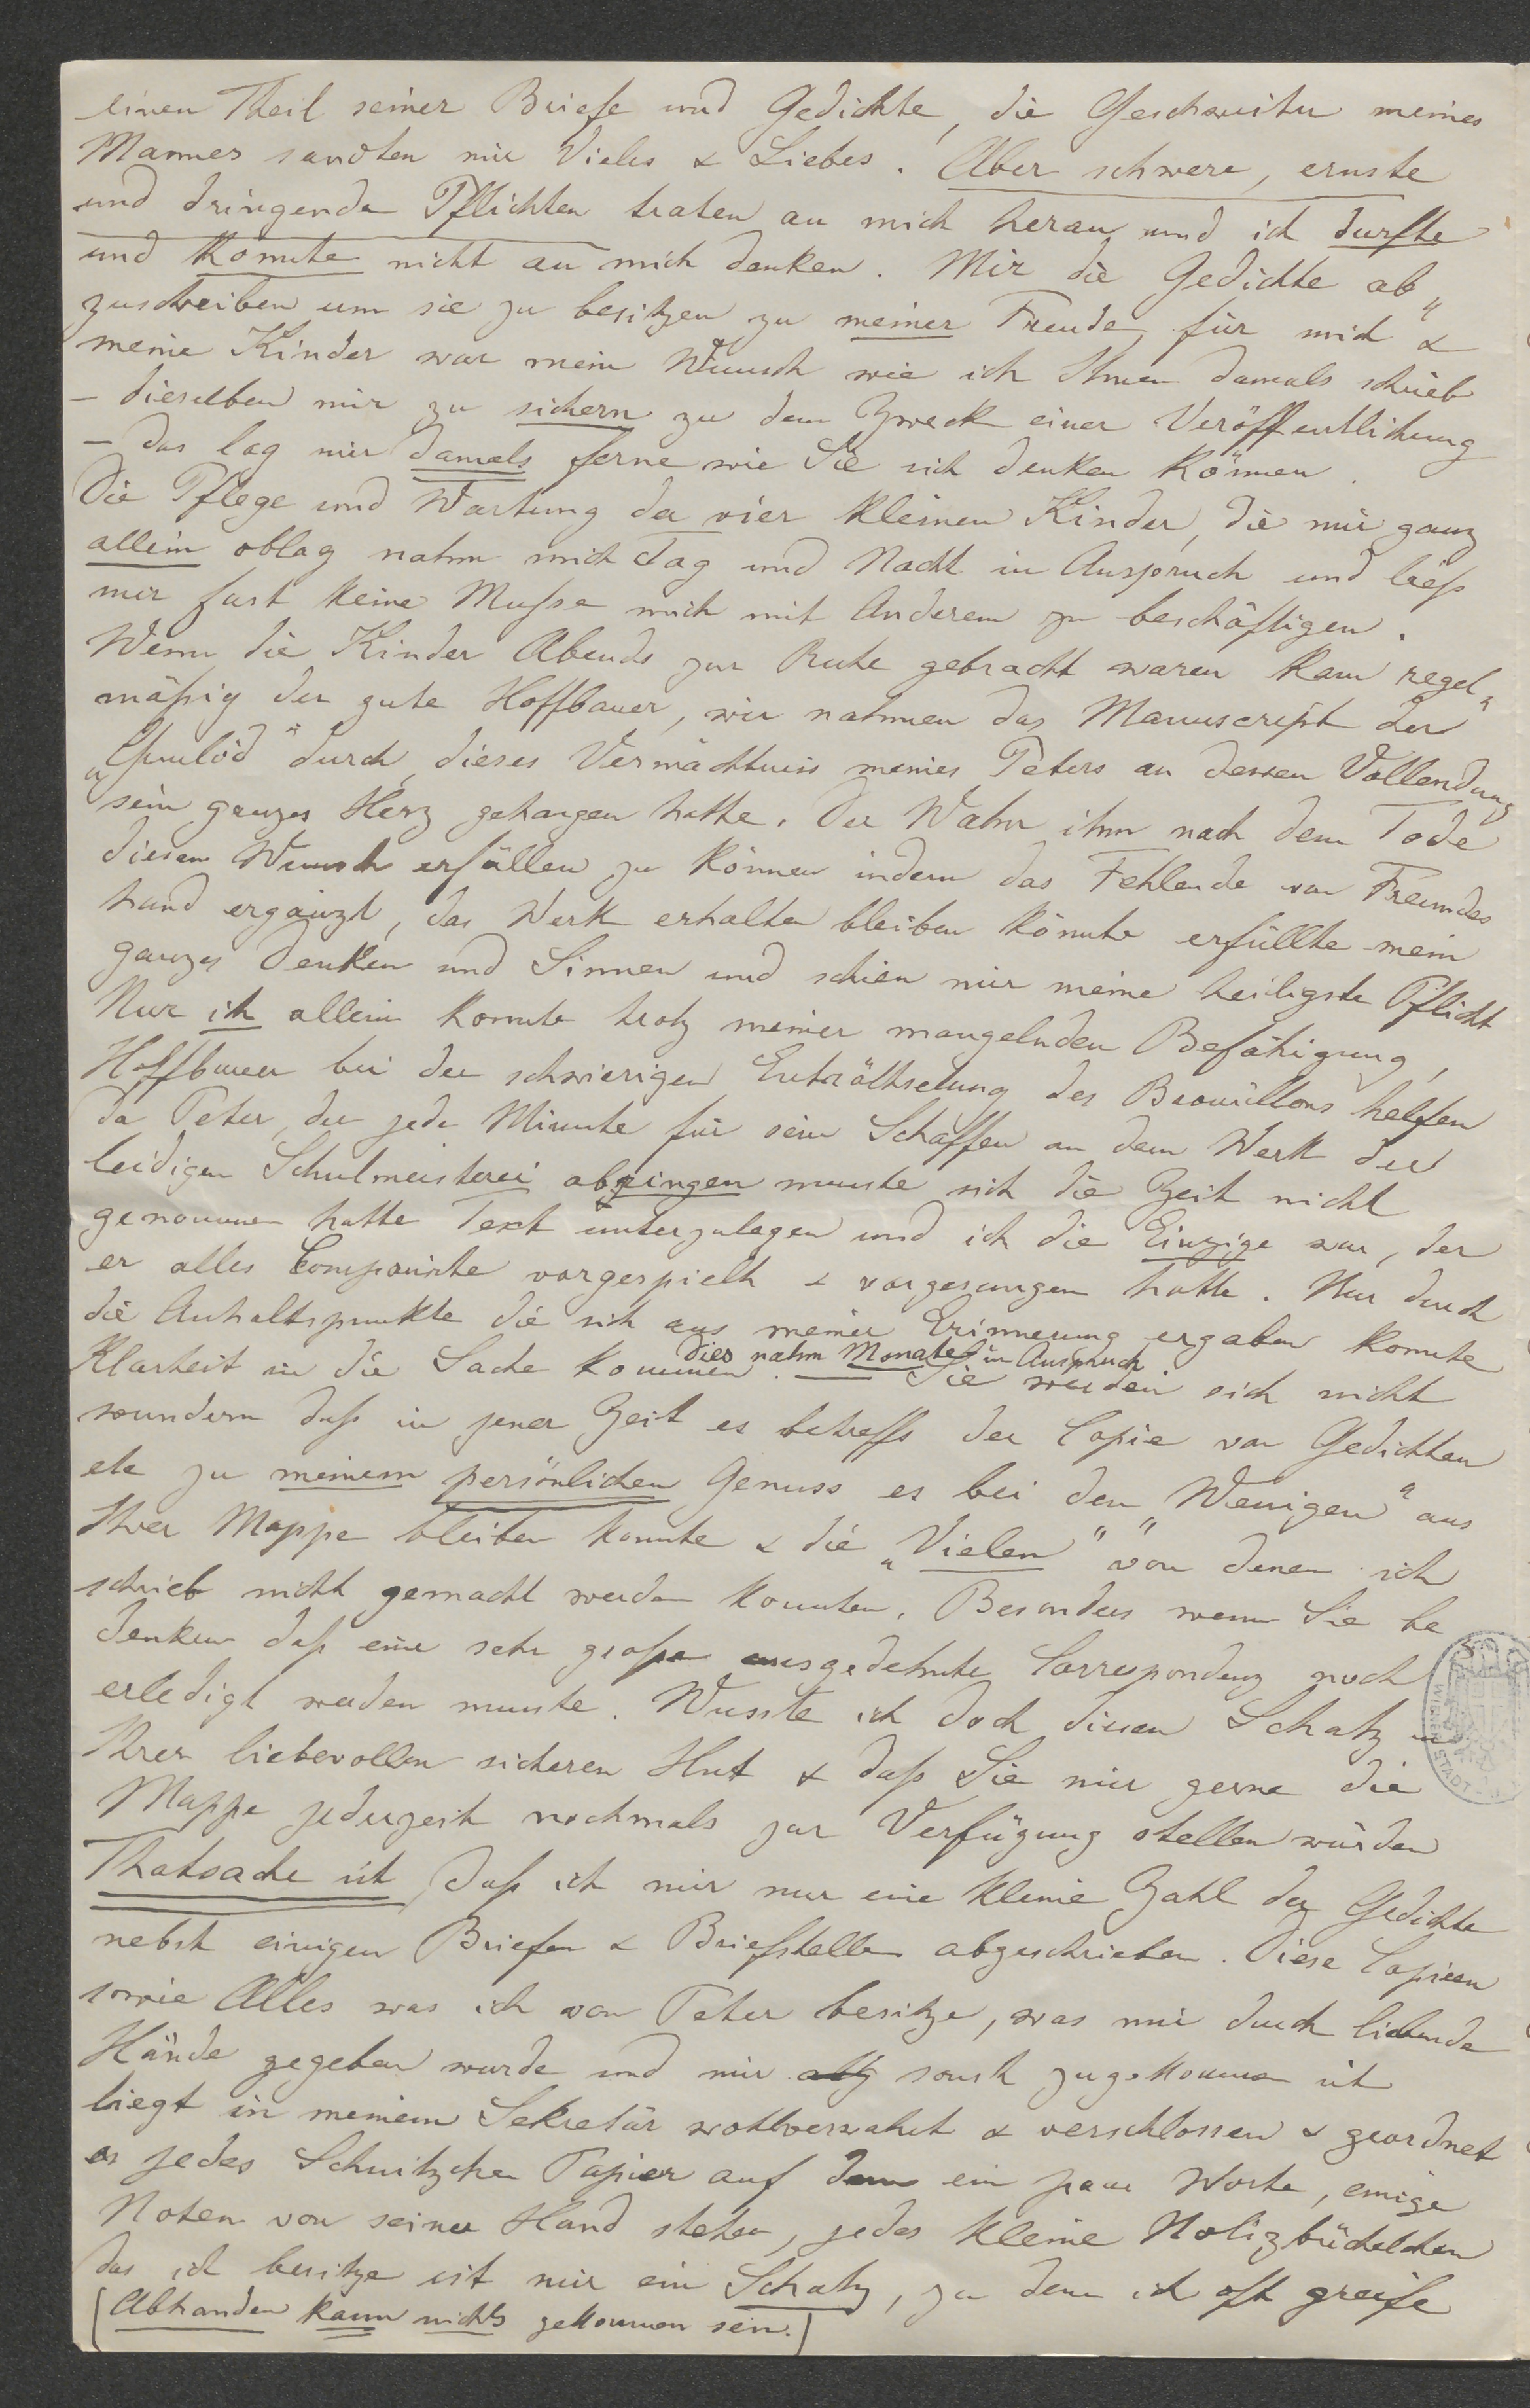 einen Theil seiner Briefe und Gedichte, die Geschwister meines
Mannes sandten mir Vieles & Liebes. Aber schwere, ernste
und dringende Pflichten traten an mich heran und ich durfte
und konnte nicht an mich denken. Mir die Gedichte ab"
zuschreiben um sie zu besitzen zu meiner Freude, für mich &
meine Kinder war mein Wunsch wie ich Ihnen damals schrieb
– dieselben mir zu sichern zu dem Zweck einer Veröffentlichung
– das lag mir damals ferne wie Sie sich denken können.
Die Pflege und Wartung der vier kleinen Kinder, die mir ganz
allein oblag nahm mich Tag und Nacht in Anspruch und liess
mir fast keine Musse mich mit Anderem zu beschäftigen.
Wenn die Kinder Abends zur Ruhe gebracht waren kam regel"
mässig der gute Hoffbauer, wir nahmen das Manuscript der
„Gunlöd" durch, dieses Vermächtniss meines Peters an dessen Vollendung
sein ganzes Herz gehangen hatte. Der Wahn ihm nach dem Tode
diesen Wunsch erfüllen zu können indem das Fehlende von Freundes
hand ergänzt, das Werk erhalten bleiben könnte erfüllte mein
ganzes Denken und Sinnen und schien mir meine heiligste Pflicht
Nur ich allein konnte trotz meiner mangelnden Befähigung,
Hoffbauer bei der schwierigen Enträthselung des Brouillons helfen
da Peter, der jede Minute für sein Schaffen an dem Werk der
leidigen Schulmeisterei abringen musste sich die Zeit nicht
genommen hatte Text unterzulegen und ich die Einzige war, der
er alles Componirte vorgespielt & vorgesungen hatte. Nur durch
die Anhaltspunkte die sich aus meiner Erinnerung ergaben konnte
Klarheit in die Sache kommen. dies nahm Monate in Anspruch Sie werden sich nicht
wundern dass in jener Zeit es betreffs der Copie von Gedichten
etc zu meinem persönlichen Genuss es bei den „Wenigen" aus
Ihrer Mappe bleiben konnte & die „Vielen" von denen ich
schrieb nicht gemacht werden konnten. Besonders wenn Sie be
denken dass eine sehr grosse ausgedehnte Correspondenz noch
erledigt werden musste. Wusste ich doch diesen Schatz in
Ihrer liebevollen sicheren Hut & dass Sie mir gerne die
Mappe jederzeit nochmals zur Verfügung stellen würden
Thatsache ist, dass ich mir nur eine kleine Zahl der Gedichte
nebst einigen Briefen & Briefstellen abgeschrieben. Diese Copieen
sowie Alles was ich von Peter besitze, was mir durch liebende
Hände gegeben wurde und mir sonst zugekommen ist
liegt in meinem Sekretär wohlverwahrt & verschlossen & geordnet
es jedes Schnitzchen Papier auf dem ein paar Worte, einige
Noten von seiner Hand stehen, jedes kleine Notizbüchelchen
das ich besitze ist mir ein Schatz, zu dem ich oft greife
[Abhanden kann nichts gekommen sein.]